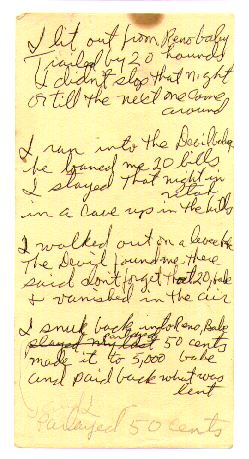 I lit out from Reno baby
Trailed by 20 hounds
I didn't stop that night
or till the next one come
around
I ran into the Devil babe
he loaned me 20 bills
I stayed that night in
Utah
in a cave up in the hills
I walked out on a levee babe
The Devil found me there
said don't forget that 20, babe
& vanished in the air
I snuk back into Reno, Babe
played my last 50 cents
made it to 5,000 babe
and paid back what was
lent
Parlayed 50 cents